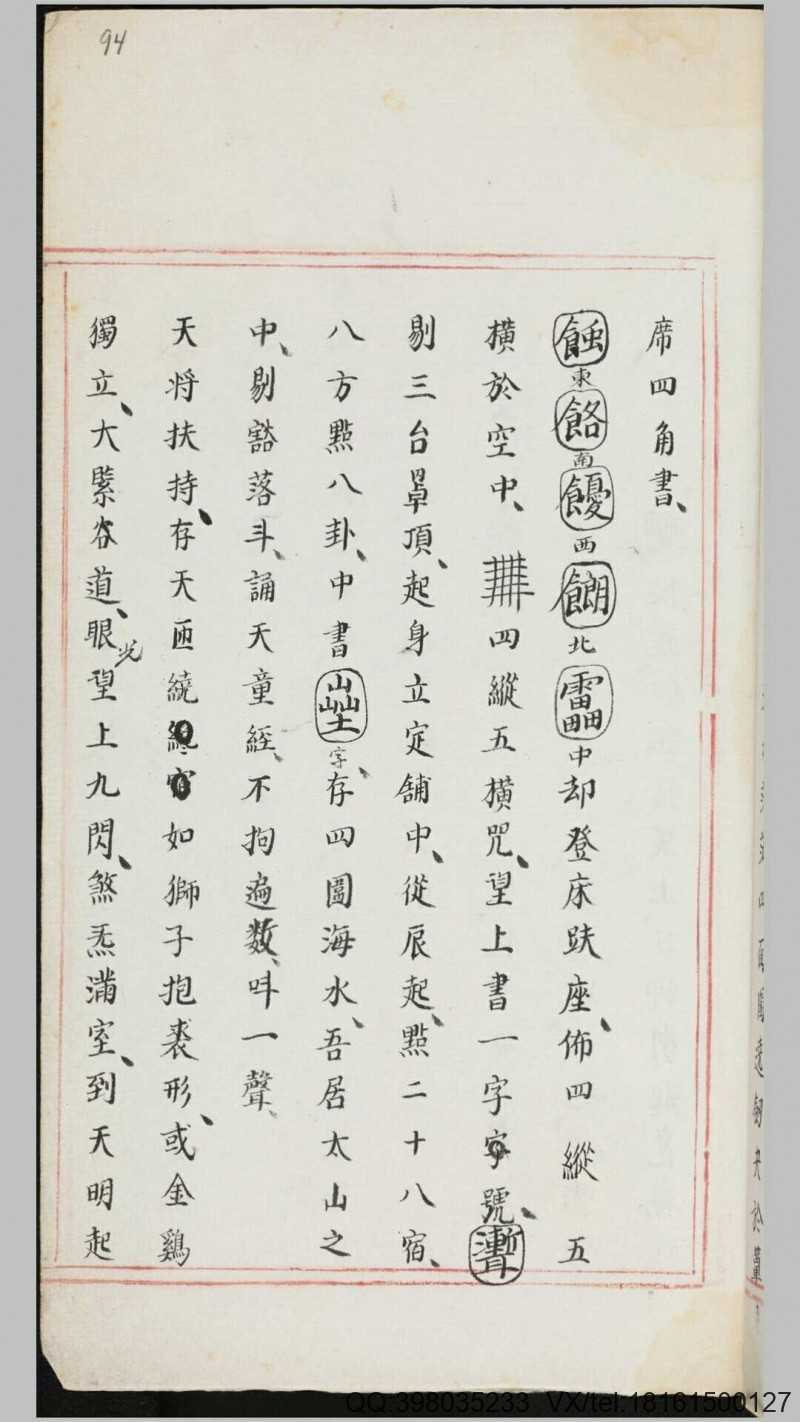 94
席四角書、
蝕東餎南 西 北 中却登床趺座、佈四縱五
橫於空中、 四縱五橫咒、望上書一字 號、
剔三台罩頂、起身立定舖中、從辰起、點二十八宿、
八方點八卦、中書 字、存四圍海水、吾居太山之
中、剔豁落斗、誦天童經、不拘遍数、呌一聲、
天将扶持、存天匝繞 如獅子抱裘形、或金鷄
獨立、大緊谷道、眼光望上九閃、煞炁满室、到天明起
QQ:398035233 VX/tel:18161500127